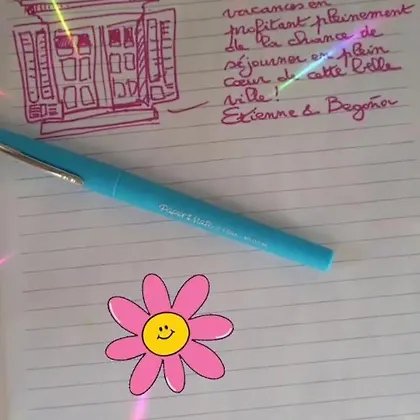 vacances en
profitant pleinement
de la chance de
séjourner en plein
cœur de cette belle
ville !
Etienne & Begoña
Paper Mate